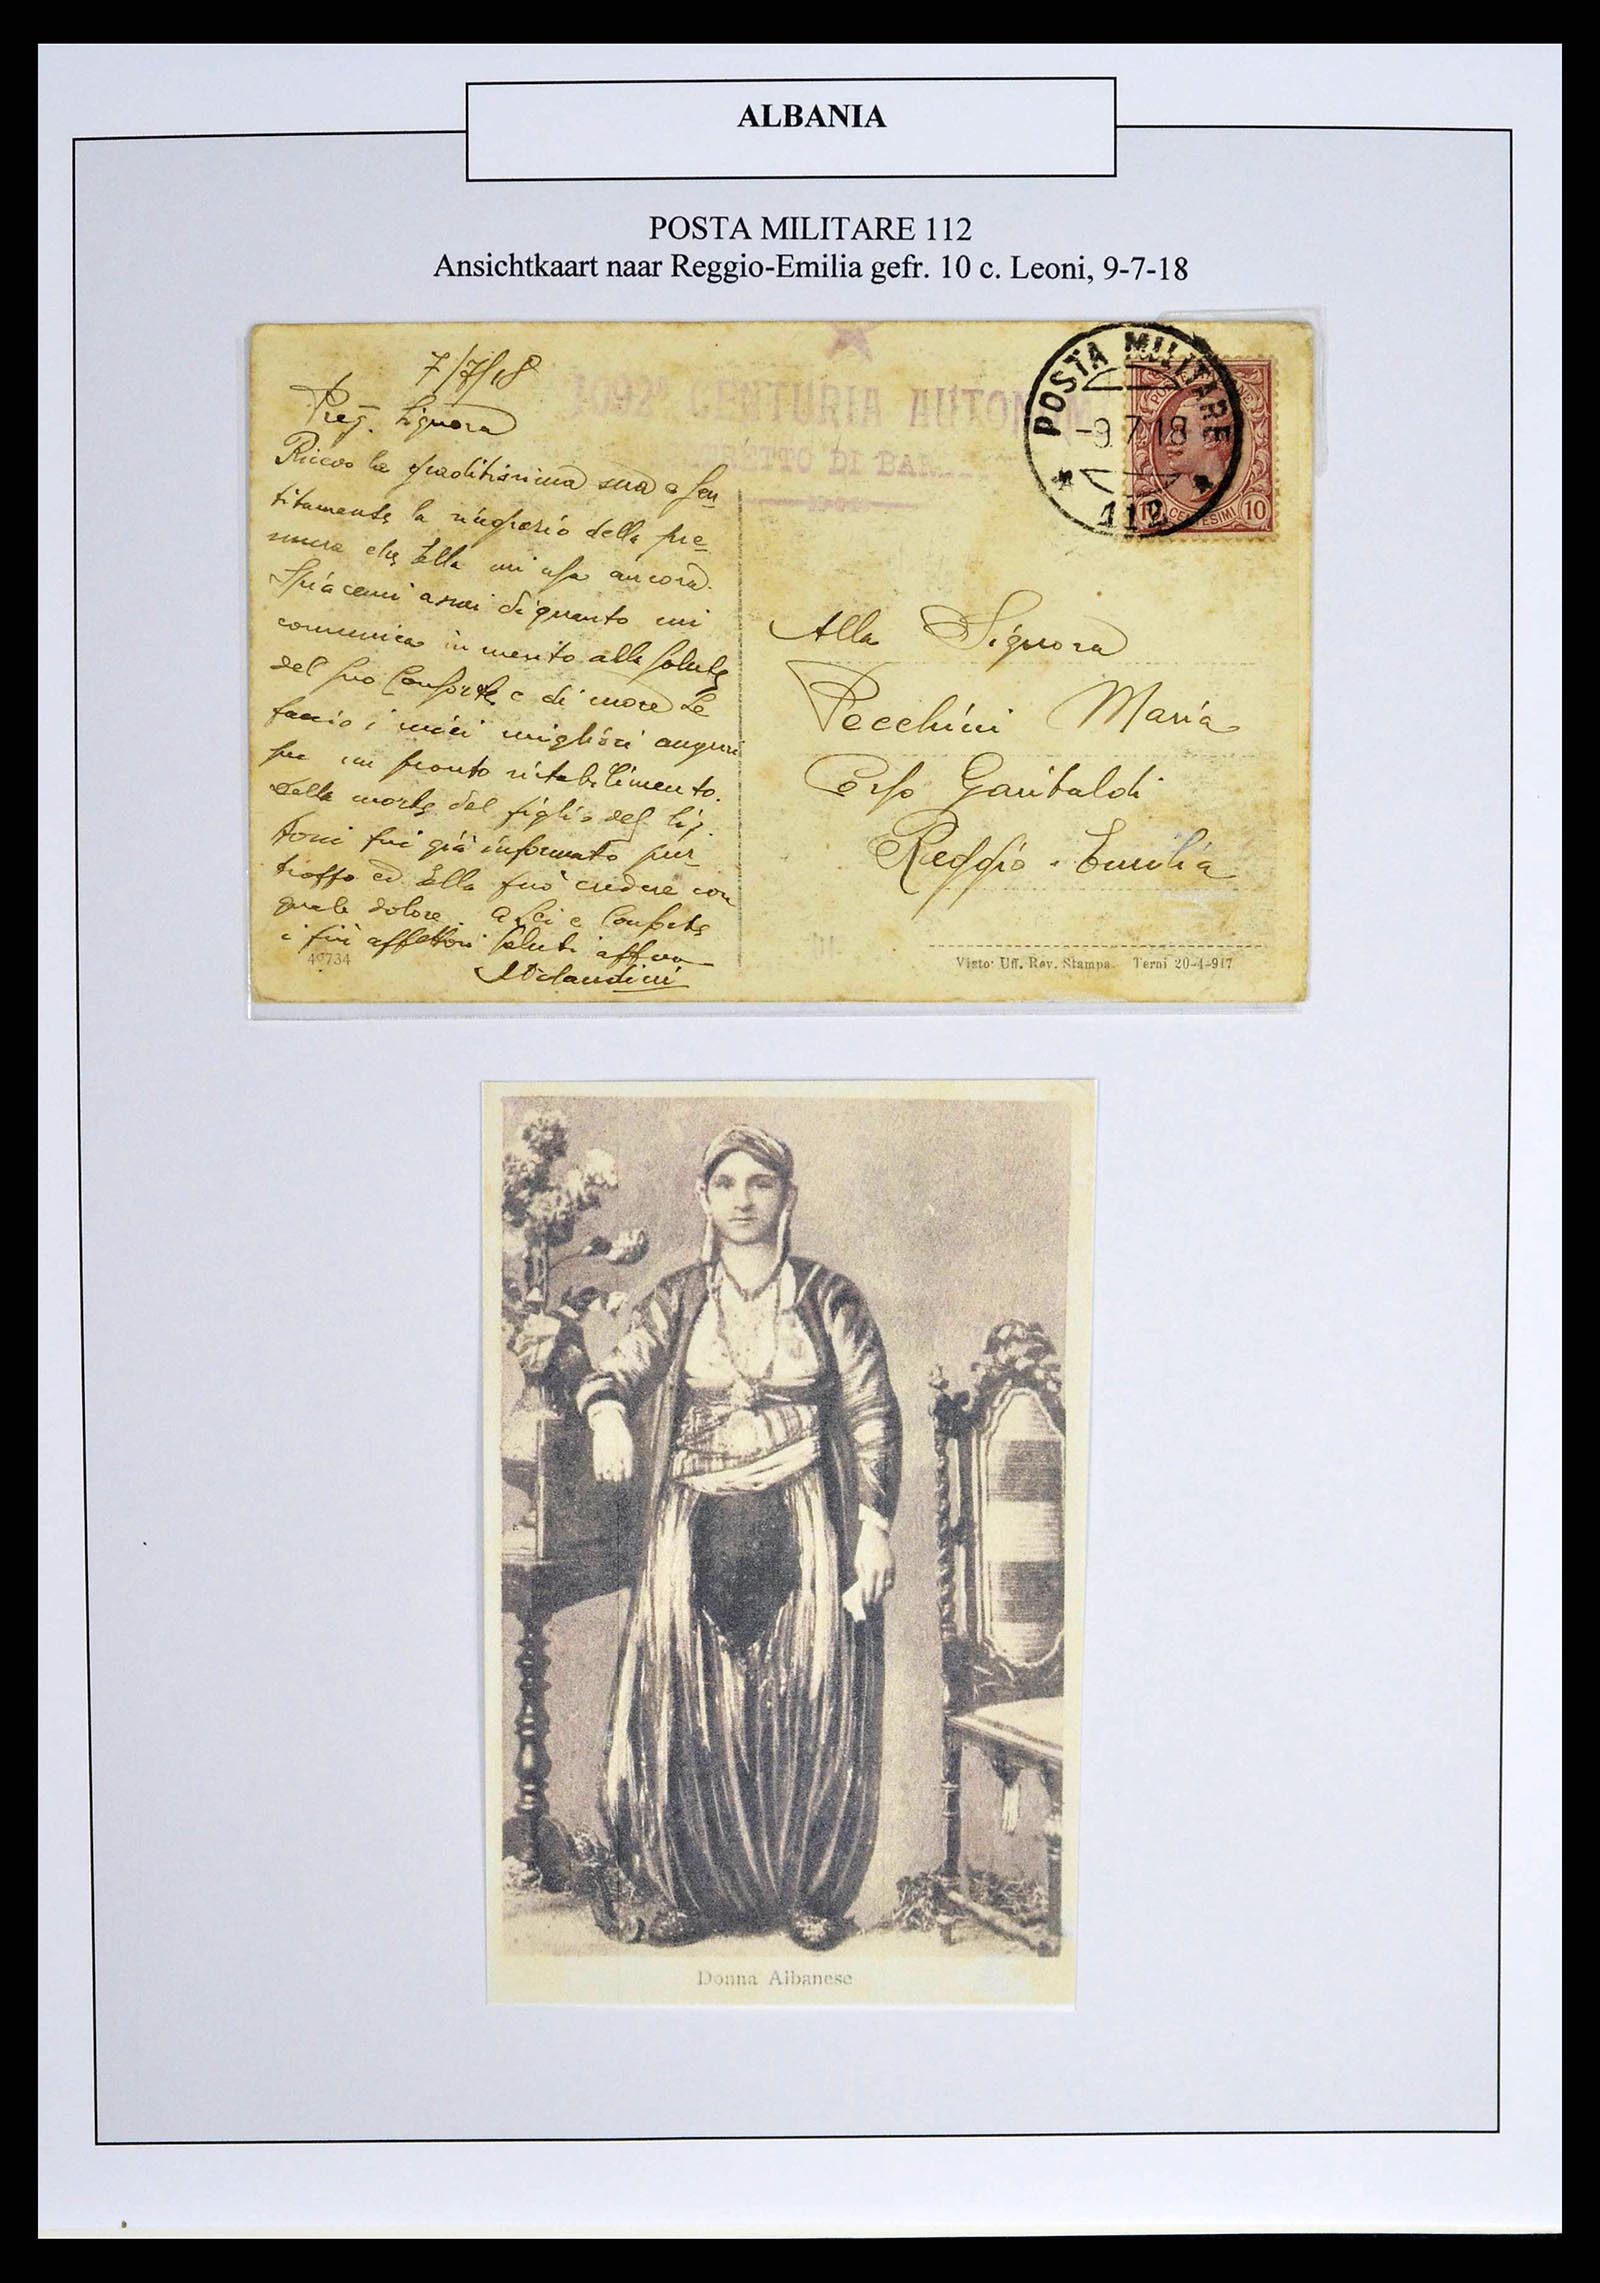 ALBANIA
POSTA MILITARE 112
Ansichtkaart naar Reggio-Emilia gefr. 10 c. Leoni, 9-7-18
7/7/18
Preg. Signora
Ricevo la graditissima sua e sen-
titamente la ringrazio della pre-
mura che Ella mi usa ancora.
Spiacemi assai di quanto mi
comunica in merito alla salute
del suo Consorte e di nuovo Le
faccio i miei migliori auguri
per un pronto ristabilimento.
Della morte del figlio del Sig.
Toni fui già informato pur-
troppo ed Ella può credere con
quale dolore. A Lei e Consorte
i più affettuosi saluti
49734
1098ª CENTURIA AUTONOMA
DI
POSTA MILITARE
-9.7.18
112
10 CENTESIMI 10
Alla Signora
Pecchini Maria
Corso Garibaldi
Reggio-Emilia
Visto: Uff. Rev. Stampa. Terni 20-4-917
Donna Albanese